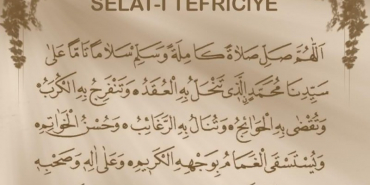 SELAT-I TEFRICIYE
اَللّٰهُمَّ صَلِّ صَلَاةً كَامِلَةً وَسَلِّمْ سَلَامًا تَامًّا عَلٰى
سَيِّدِنَا مُحَمَّدٍ الَّذِي تَنْحَلُّ بِهِ الْعُقَدُ وَتَنْفَرِجُ بِهِ الْكُرَبُ
وَتُقْضٰى بِهِ الْحَوَائِجُ وَتُنَالُ بِهِ الرَّغَائِبُ وَحُسْنُ الْخَوَاتِمِ
وَيُسْتَسْقَى الْغَمَامُ بِوَجْهِهِ الْكَرِيمِ وَعَلٰى اٰلِهِ وَصَحْبِهِ